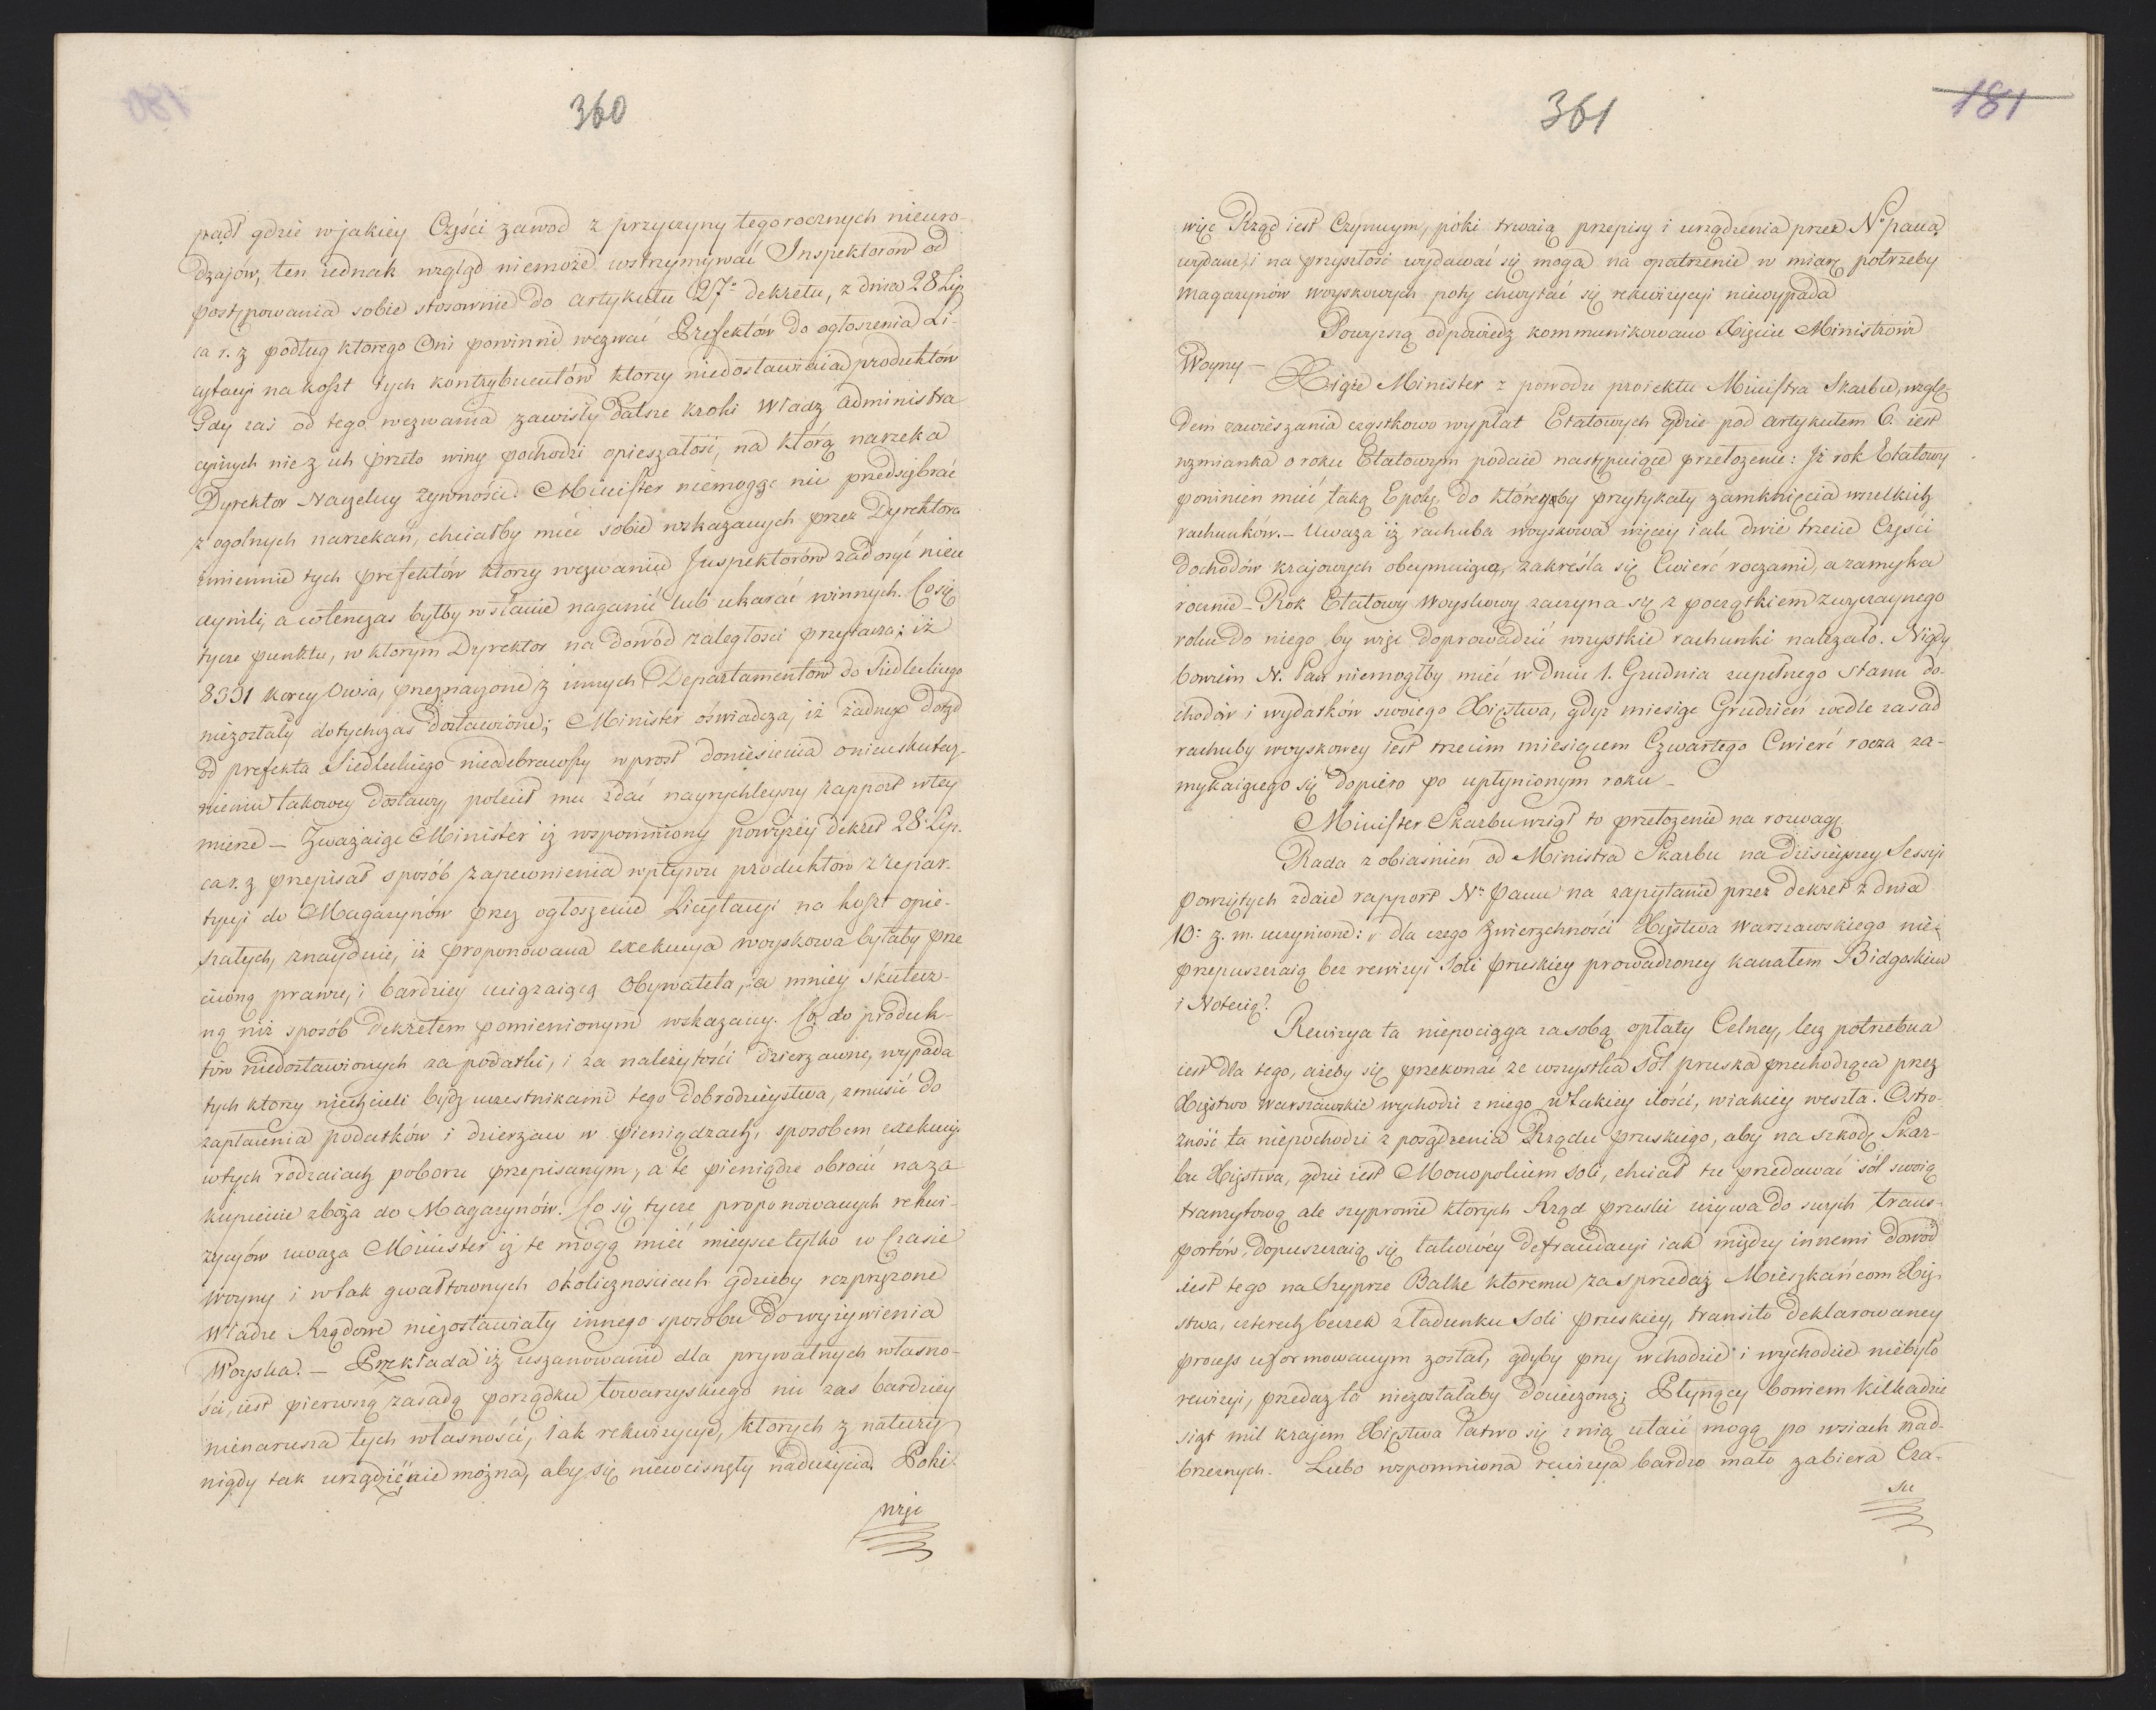 360
padł gdzie wjakiey Części zawod z przyczyny tegorocznych nieuro-
dzajów, ten iednak wzgląd niemoże wstrzymywać Inspektorów od
postępowania sobie stosownie do artykułu 27º dekretu, z dnia 28 Lip
ca r. z podług ktorego Oni powinni wezwać Prefektów do ogłoszenia Li-
cytacyi na koszt tych kontrybuentów ktorzy niedostawiaią produktów
Gdy zaś od tego wezwania zawisły dalsze kroki Władz administra
cyinych nie z ich przeto winy pochodzi opieszałość, na którą narzeka
Dyrektor Naczelny żywności. Minister niemogąc nic przedsiębrać
z ogolnych narzekań, chciałby mieć sobie wskazanych przez Dyrektora
imiennie tych prefektów ktorzy wezwaniu Inspektorów zadosyć nieu
czynili, a wtenczas byłby wstanie naganić lub ukarać winnych. Co się
tycze punktu, w ktorym Dyrektor na dowód zaległości przytacza; iż
8331 korcy Owsa, przeznaczone z innych Departamentów do Siedleckiego
niezostały dotychczas dostawione; Minister oświadcza, iż żadnego dotąd
od prefekta Siedleckiego nieodebrawszy wprost doniesienia onieuskutecz-
nieniu takowey dostawy, polecił mu zdać nayrychleyszy rapport wtey
mierze — Zważaiąc Minister iż wspomniony powyżey dekret 28. Lip.
ca r. z przepisał sposób zapewnienia wpływu produktow z repar-
tycyi do Magazynów przez ogłoszenie Licytacyi na koszt opie-
szałych, znayduie, iż proponowana exekucya woyskowa byłaby prze
ciwną prawu, i bardziey uciążaiącą Obywatela, a mniey skutecz-
ną niż sposób dekretem pomienionym wskazany. Co do produk-
tów niedostawionych za podatki, i za należytości dzierżawne, wypada
tych ktorzy niechcieli bydź uczestnikami tego dobrodzieystwa, zmusić do
zapłacenia podatków i dzierżaw w pieniądzach, sposobem exekucyi
wtych rodzaiach poboru przepisanym, a te pieniądze obrocić na za
kupienie zboża do Magazynów. Co się tycze proponowanych rekwi-
zycyów uważa Minister iż te mogą mieć mieysce tylko w Czasie
woyny i wtak gwałtownych okolicznościach gdzieby rozprzężone
Władze Rządowe niezostawiały innego sposobu do wyżywienia
Woyska. — Przekłada iż uszanowanie dla prywatnych własno-
ści, iest pierwszą zasadą porządku towarzyskiego nic zaś bardziey
nienarusza tych własności, iak rekwizycye, ktorych z natury
nigdy tak urządzić nie można, aby się niewcisnęły nadużycia. Poki
więc
361
181
więc Rząd iest Czynnym, póki trwaią przepisy i urządzenia przez Nº pana
wydane, i na przyszłość wydawać się mogą na opatrzenie w miarę potrzeby
Magazynów woyskowych poty chwytać się rekwizycyi niewypada
Powyższą odpowiedz kommunikowano Xięciu Ministrowi
Woyny —
Xiąże Minister z powodu proiektu Ministra Skarbu, wzglę-
dem zawieszania cząstkowo wypłat Etatowych gdzie pod artykułem 6. iest
wzmianka o roku Etatowym podaie następuiące przełożenie: Iż rok Etatowy
powinien mieć taką Epokę do któreyby przytykały zamknięcia wszelkich
rachunków. — Uważa iż rachuba woyskowa więcey iak dwie trzecie Części
dochodów kraiowych obeymuiąca, zakreśla się Cwierć roczami, a zamyka
rocznie — Rok Etatowy Woyskowy zaczyna się z początkiem zwyczaynego
roku do niego by więc doprowadzić wszystkie rachunki należało. Nigdy
bowiem N. Pan niemogłby mieć w dniu 1. Grudnia zupełnego stanu do-
chodów i wydatków swoiego Xięstwa, gdyż miesiąc Grudzień wedle zasad
rachuby woyskowey iest trzecim miesiącem Czwartego Cwierć rocza za-
mykaiącego się dopiero po upłynionym roku —
Minister Skarbu wziął to przełożenie na rozwagę.
Rada z obiaśnień od Ministra Skarbu na dzisieyszey Sessyi
powziętych zdaie rapport Nº Panu na zapytanie przez dekret z dnia
10º z. m. uczynione: „dla czego Zwierzchności Xięstwa Warszawskiego nie
przepuszczaią bez rewizyi Soli pruskiey prowadzoney kanałem Bidgoskim
i Notecią?
Rewizya ta niepociąga za sobą opłaty Celney, lecz potrzebna
iest dla tego, ażeby się przekonać że wszystka Sól pruska przechodząca przez
Xięstwo Warszawskie wychodzi z niego wtakiey ilości, wiakiey weszła. Ostro-
żność ta niepochodzi z posądzenia Rządu pruskiego, aby na szkodę Skar-
bu Xięstwa, gdzie iest Monopolium Soli, chciał tu przedawać sól swoią
tranzytową ale szyprowie ktorych Rząd pruski używa do swych trans-
portów, dopuszczaią się takowey defraudacyi iak między innemi dowód
iest tego na Szyprze Balke ktoremu za sprzedaż Mieszkańcom Xię-
stwa, czterech beczek z ładunku Soli pruskiey, transito deklarowaney
process uformowanym został, gdyby przy wchodzie i wychodzie niebyło
rewizyi, przedaż ta niezostałaby docieczoną; Płynący bowiem kilkadzie
siąt mil krajem Xięstwa łatwo się z nią utaić mogą po wsiach nad-
brzeżnych. Lubo wspomniona rewizya bardzo mało zabiera Cza-
su